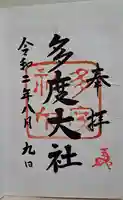 奉拝
多度大社
令和二年八月九日